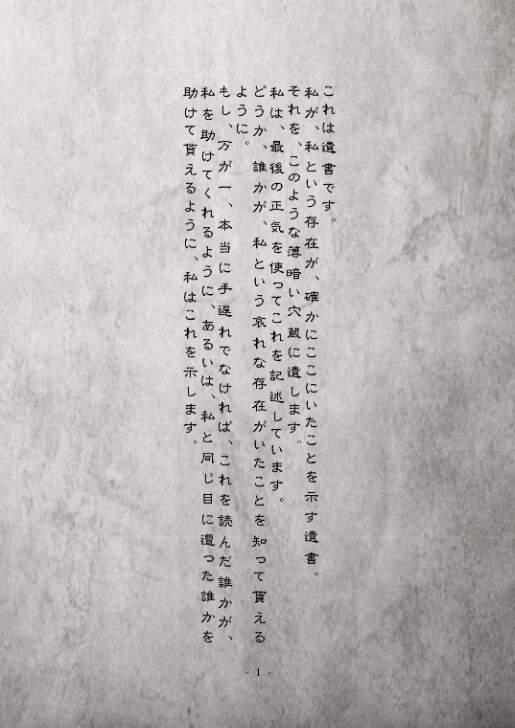 これは遺書です。
私が、私という存在が、確かにここにいたことを示す遺書。
それを、このような薄暗い穴蔵に遺します。
私は、最後の正気を使ってこれを記述しています。
どうか、誰かが、私という哀れな存在がいたことを知って貰える
ように。
もし、万が一、本当に手遅れでなければ、これを読んだ誰かが、
私を助けてくれるように、あるいは、私と同じ目に遭った誰かを
助けて貰えるように、私はこれを示します。
- 1 -